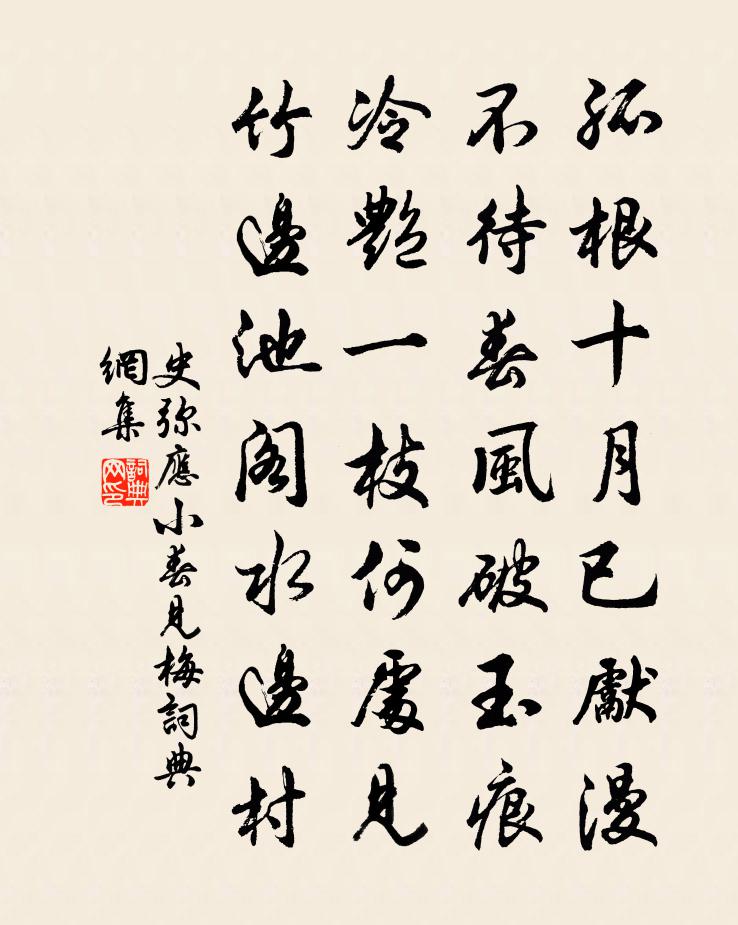 孤根十月已獻漫
不待春風破玉痕
冷艷一枝何處見
竹邊池閣水邊村
史弥應小春見梅詞典
網集
詞典
网印